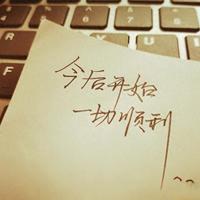 R
U
F
今后开始
一切顺利
^^